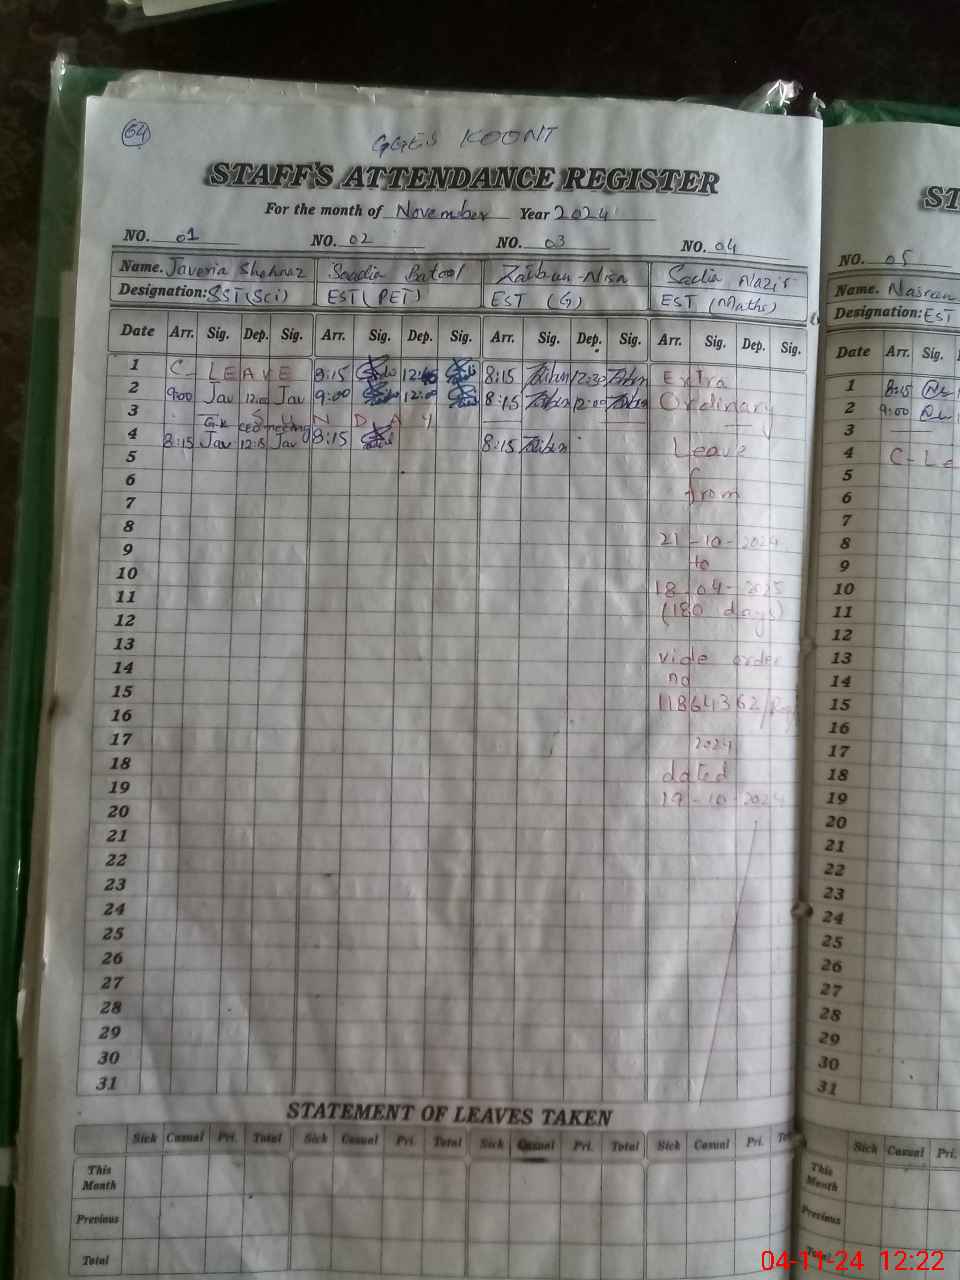 64
GGES KOONT
STAFF'S ATTENDANCE REGISTER
For the month of November Year 2024
NO. 01 NO. 02 NO. 03 NO. 04
Name. Javeria Shehnaz Saadia Batool Zaibun-Nisa Sadia Nazir
Designation: SST(Sci) EST(PET) EST (G) EST (Maths)
Date Arr. Sig. Dep. Sig. Arr. Sig. Dep. Sig. Arr. Sig. Dep. Sig. Arr. Sig. Dep. Sig.
1 C-LEAVE 8:15 8:15 12:30 Extra
2 9:00 Jav 12:00 Jav 9:00 12:00 8:15 12:00 Ordinary
3 SUNDAY
4 8:15 Jav 12:15 Jav 8:15 8:15 Leave
5
6 from
7
8 21-10-2024
9 to
10 18-04-2025
11 (180 days)
12
13 vide order
14 no
15 11864362/
16
17 2024
18 dated
19 19-10-2024
20
21
22
23
24
25
26
27
28
29
30
31
STATEMENT OF LEAVES TAKEN
Sick Casual Pri. Total Sick Casual Pri. Total Sick Casual Pri. Total Sick Casual Pri.
This Month
Previous
Total
ST
NO. 05
Name. Nasreen
Designation: EST
Date Arr. Sig.
1 8:15
2 9:00
3
4 C-Le
5
6
7
8
9
10
11
12
13
14
15
16
17
18
19
20
21
22
23
24
25
26
27
28
29
30
31
Sick Casual Pri.
This Month
Previous
Total
04-11-24 12:22